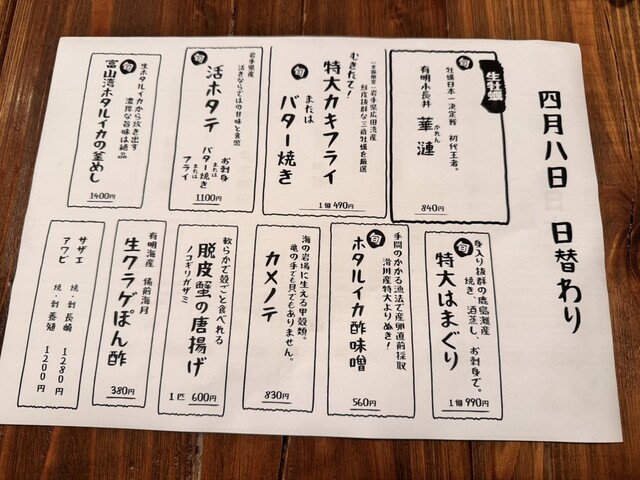 四月八日 日替わり
生牡蠣
旬
牡蠣日本一決定戦 初代王者。
有明小長井 華漣
かれん
840円
むきたて!
旬
特大カキフライ
または
バター焼き
1個 490円
岩手県産
活きならではの甘味と食感
旬
活ホタテ
お刺身
または
バター焼き
または
フライ
1100円
生ホタルイカから炊き出す
濃厚な旨味は絶品
旬
富山湾ホタルイカの釜めし
1400円
身入り抜群の鹿島灘産
焼き、酒蒸し、お刺身で。
旬
特大はまぐり
1個 990円
手間のかかる漁法で産卵直前採取
滑川産特大よりぬき!
旬
ホタルイカ酢味噌
560円
海の岩場に生える甲殻類。
亀の手でも貝でもありません。
カメノテ
830円
軟らかで殻ごと食べれる
ノコギリガザミ
脱皮蟹の唐揚げ
1匹 600円
有明海産 備前海月
生クラゲぽん酢
380円
サザエ 焼・刺 長崎 1280円
アワビ 焼・刺 養殖 1200円